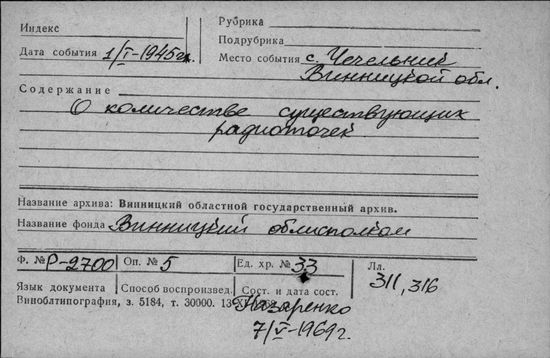 Индекс
Рубрика
Подрубрика
Дата события 1/I-1945г.
Место события с. Чечельник
Винницкой обл.
Содержание О количестве существующих
радиоточек
Название архива: Винницкий областной государственный архив.
Название фонда Винницкий облисполком
Ф. № Р-2700 Оп. № 5 Ед. хр. № 33 Лл. 311, 316
Язык документа Способ воспроизвед. Сост. и дата сост.
Виноблтипография, з. 5184, т. 30000. 13
Назаренко
7/V-1969г.